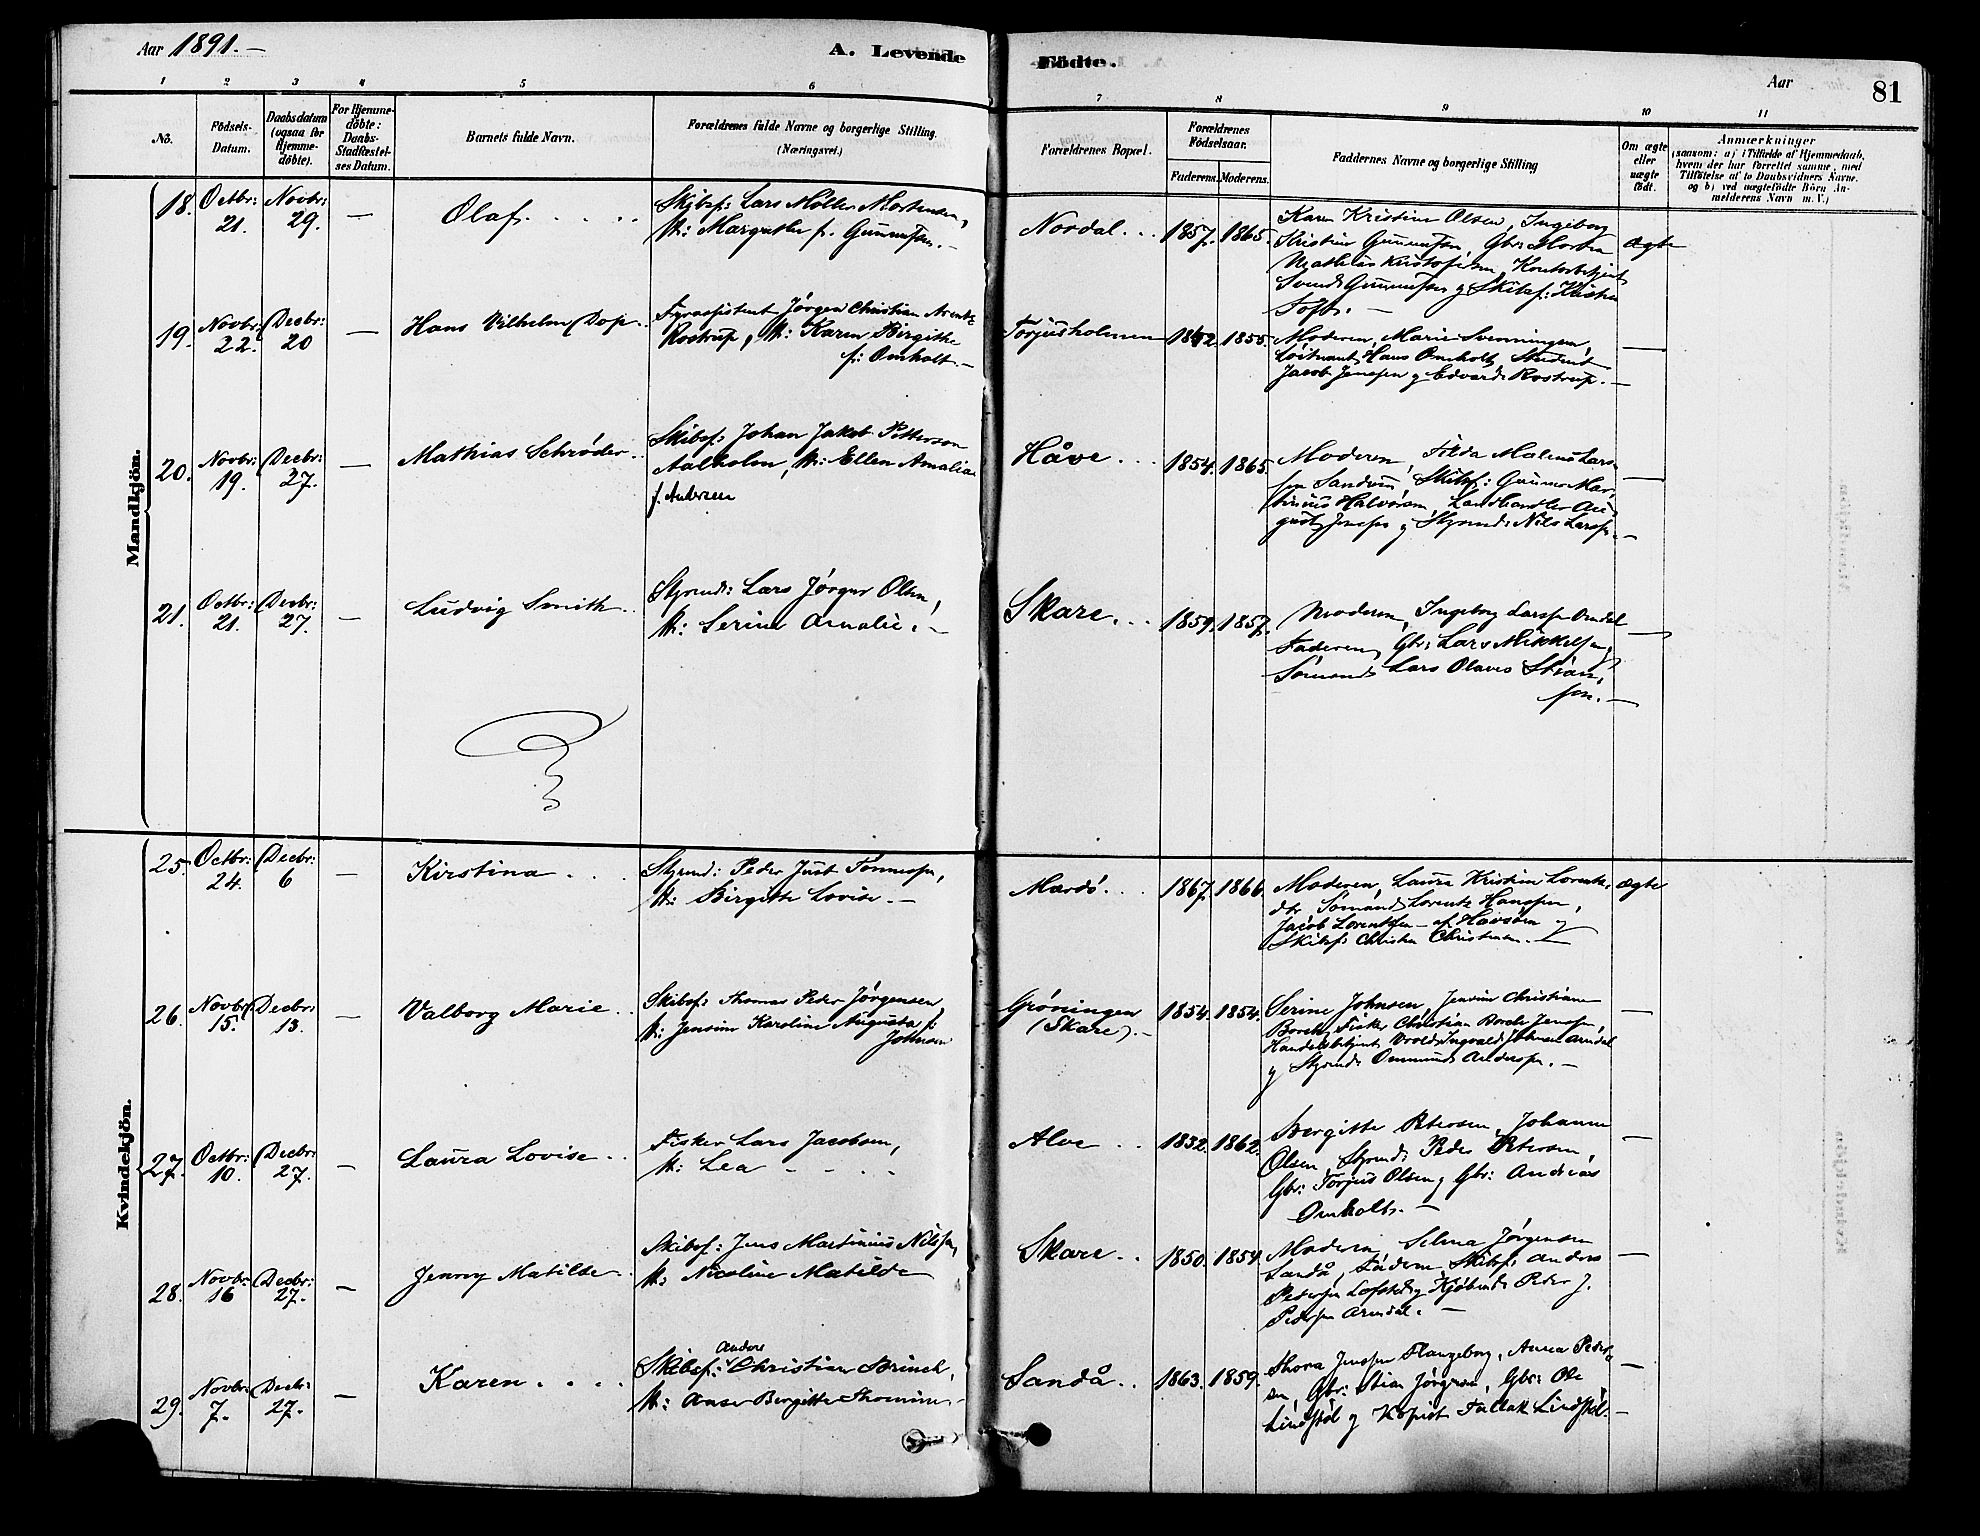 Aar 1891.—
A. Levende
Födte.
Aar
81
1 2 3 4 5 6 7 8 9 10 11
No.
Födsels-
Datum.
Daabsdatum
(ogsaa för
Hjemme-
döbte).
For Hjemme-
döbte:
Daabs-
Stadfæstel-
ses Datum.
Barnets fulde Navn.
Forældrenes fulde Navne og borgerlige Stilling.
(Næringsvei.)
Forældrenes Bopæl.
Forældrenes
Födselsaar.
Faderens. Moderens.
Faddernes Navne og borgerlige Stilling
Om ægte
eller
uægte
födt.
Anmærkninger
(saasom: a) i Tilfælde af Hjemmedaab,
hvem der har forrettet samme, med
Tilföielse af to Daabsvidners Navne.
og b) ved uægtefödte Börn An-
melderens Navn m. V.)
Mandkjön.
18. Octbr: 21. Novbr: 29. — Olaf
Skibsf: Lars Møller Mortensen,
H: Margrethe f. Gunnufsen.—
Nordal 1857. 1865.
Karen Kristine Olsen, Ingeborg
Kristine Gunnufsen, Gbr: Morten
Mathias Kristofersen, Kontorbetjent
Svend Gunnufsen g Skibsf: Kristen
Toft.—
ægte
19. Novbr: 22. Decbr: 20 — Hans Vilhelm Dop
Fyrassistent Jørgen Christian Arentz
Rostrup, H: Karen Birgithe
f: Omholt.—
Torjusholmen 1852. 1855.
Moderen, Marie Svenningsen,
Løitnant Hans Omholt, Student
Jacob Jenssen g Edvard Rostrup.—
—
20. Novbr: 19. Decbr: 27. — Mathias Schrøder
Skibsf: Johan Jakob Petterson
Aalholm, H: Ellen Amalia
f. Andersen
Håve 1854. 1865.
Moderen, Tilda Malene Lars-
sen Sandum, Skibsf: Gunnar Mar-
tinius Halvorsen, Landhandler Au-
gust Jenssen g Styrmd: Nils Larssen.—
—
21. Octbr: 21. Decbr: 27. — Ludvig Smith
Styrmd: Lars Jørgen Olsen,
H: Serine Amalie.—
Skare 1859. 1857.
Moderen, Ingeborg Larssen Arndal
Faderen, Gbr: Lars Mikkelsen,
Sømand Lars Olaves Stian-
sen.—
—
Kvindekjön.
25. Octbr: 24. Decbr: 6 — Kirstina
Styrmd: Peder Just Tønnessen,
H: Birgitte Lovise.—
Mærdø 1867. 1866
Moderen, Laura Kristine Lorentz-
dtr, Sømand Lorentz Hanssen,
Jacob Lorentssen — af Havsøen g
Skibsf: Christen Christensen.—
ægte
26. Novbr: 15. Decbr: 13. — Valborg Marie
Skibsf: Thomas Peder Jørgensen,
H: Jensine Karoline Augusta f:
Johnsen
Grøningen
(Skare).— 1854. 1854.
Serine Johnsen, Jensine Christiane
Borch, Fisker Christian Borch Jenssen,
Handelsbetjent Vrold Ingvald Johnsen Arndal
g Styrmd: Ommund Anderssen.—
—
27. Octbr: 10. Decbr: 27. — Laura Lovise
Fisker Lars Jacobsen,
H: Lea
Alve 1832. 1862.
Bergitte Petersen, Johanne
Olsen, Styrmd: Peder Petersen,
Gbr: Torjus Olsen g Gbr: Andreas
Omholt.—
—
28. Novbr: 16 Decbr: 27. — Jenny Matilde
Skibsf: Jens Martinius Nilssen,
H: Nicoline Matilde
Skare 1850. 1854.
Moderen, Selma Jørgensen
Sandå, Faderen, Skibsf: Anders
Pedersen Lofsted g Kjøbmd: Peder J.
Pederssen Arendal.—
—
29. Novbr: 7. Decbr: 27. — Karen
Skibsf: Anders Christian Brinch,
H: Anne Bergitte Thomine—
Sandå 1863. 1859.
Thora Jenssen Flangeborg, Anna Peder-
sen, Gbr: Stian Jørgensen, Gbr: Ole
Lindstøl g Kopist Tallak Lindstøl.—
—